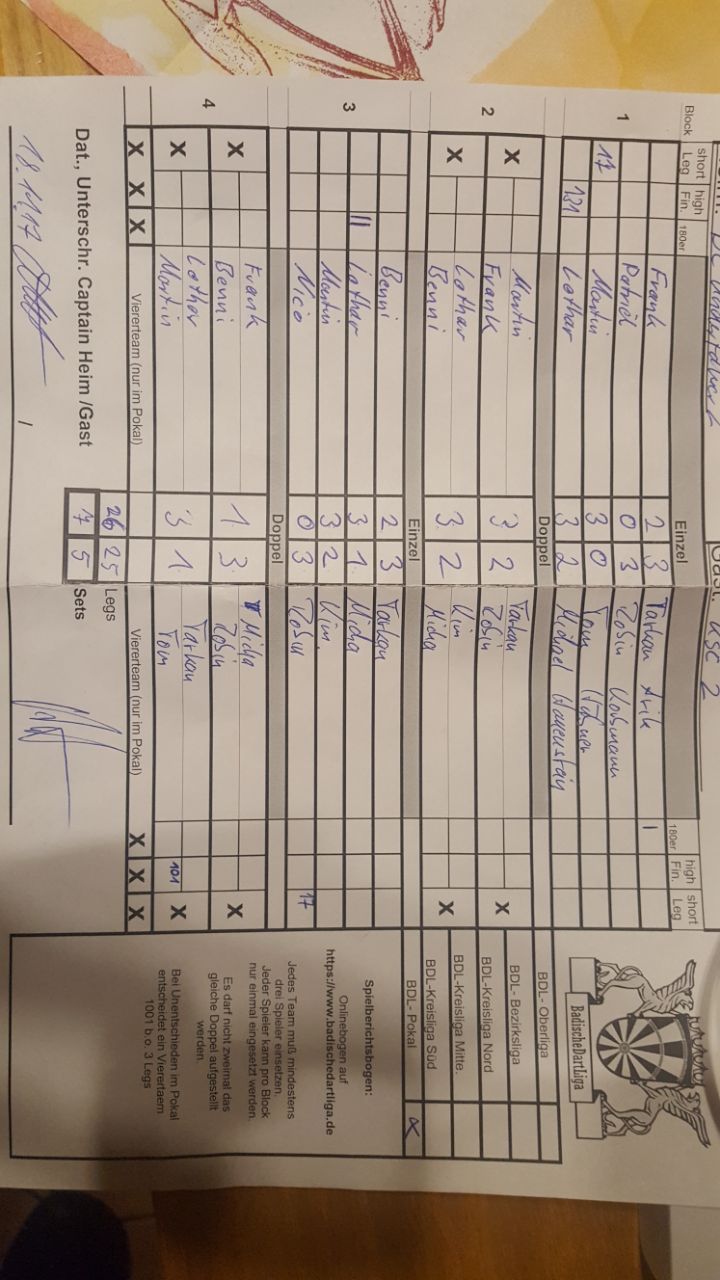 KSC 2
Block short Leg high Fin. 180er Einzel 180er high Fin. short Leg
1 Frank 2 3 Tarkan Arik I
Patrick 0 3 Robin Korsmann
17 Martin 3 0 Tom
131 Lothar 3 2 Michael
Doppel
2 X Martin 3 2 Tarkan X
Frank Robin
X Lothar 3 2 Kim X
Benni Micha
Einzel
3 Benni 2 3 Tarkan
II Lothar 3 1 Micha
Martin 3 2 Kim
Nico 0 3 Robin 17
Doppel
4 X Frank 1 3 Micha X
Benni Robin
X Lothar 3 1 Tarkan 101 X
Martin Tom
X X X Viererteam (nur im Pokal) Viererteam (nur im Pokal) X X X
26 25 Legs
Dat., Unterschr. Captain Heim /Gast 7 5 Sets
18.11.17
BadischeDartLiga
BDL- Oberliga
BDL- Bezirksliga
BDL-Kreisliga Nord
BDL-Kreisliga Mitte.
BDL-Kreisliga Süd
BDL- Pokal X
Spielberichtsbogen:
Onlinebogen auf
https://www.badischedartliga.de
Jedes Team muß mindestens
drei Spieler einsetzen.
Jeder Spieler kann pro Block
nur einmal eingesetzt werden.
Es darf nicht zweimal das
gleiche Doppel aufgestellt
werden.
Bei Unentschieden im Pokal
entscheidet ein Vierertaem
1001 b.o. 3 Legs